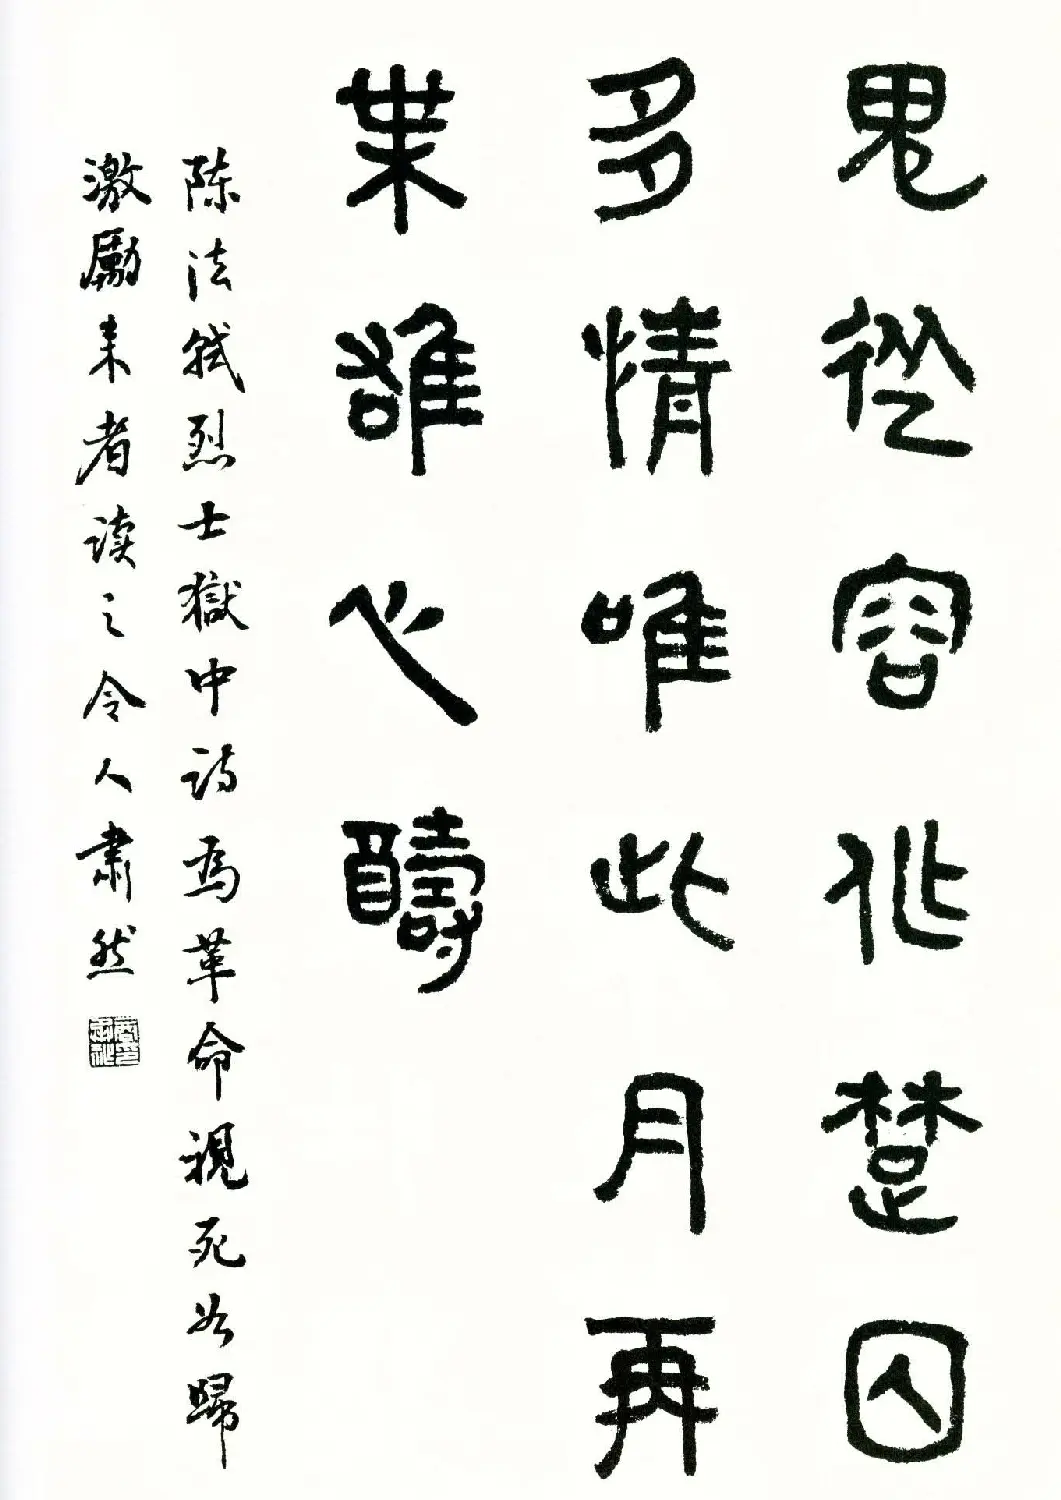 鬼從容作楚囚
多情唯此月再
業雄心醻
陈法轼烈士獄中诗为革命視死如歸
激勵来者读之令人肅然